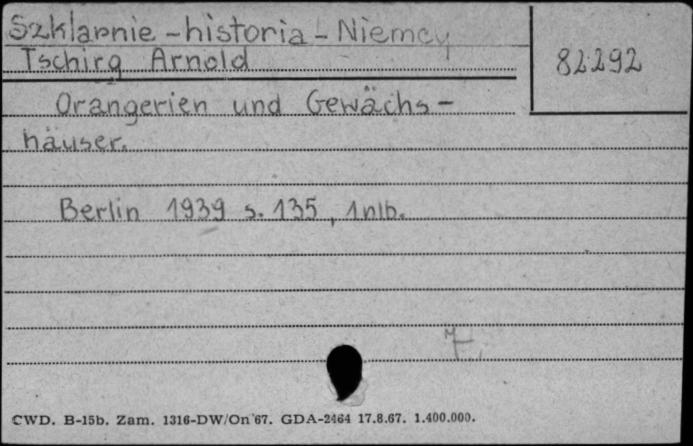 Szklarnie - historia - Niemcy
Tschirg Arnold
82292
Orangerien und Gewächs-
häuser.
Berlin 1939 s. 135, 1nlb.
CWD. B-15b. Zam. 1316-DW/On 67. GDA-2464 17.8.67. 1.400.000.